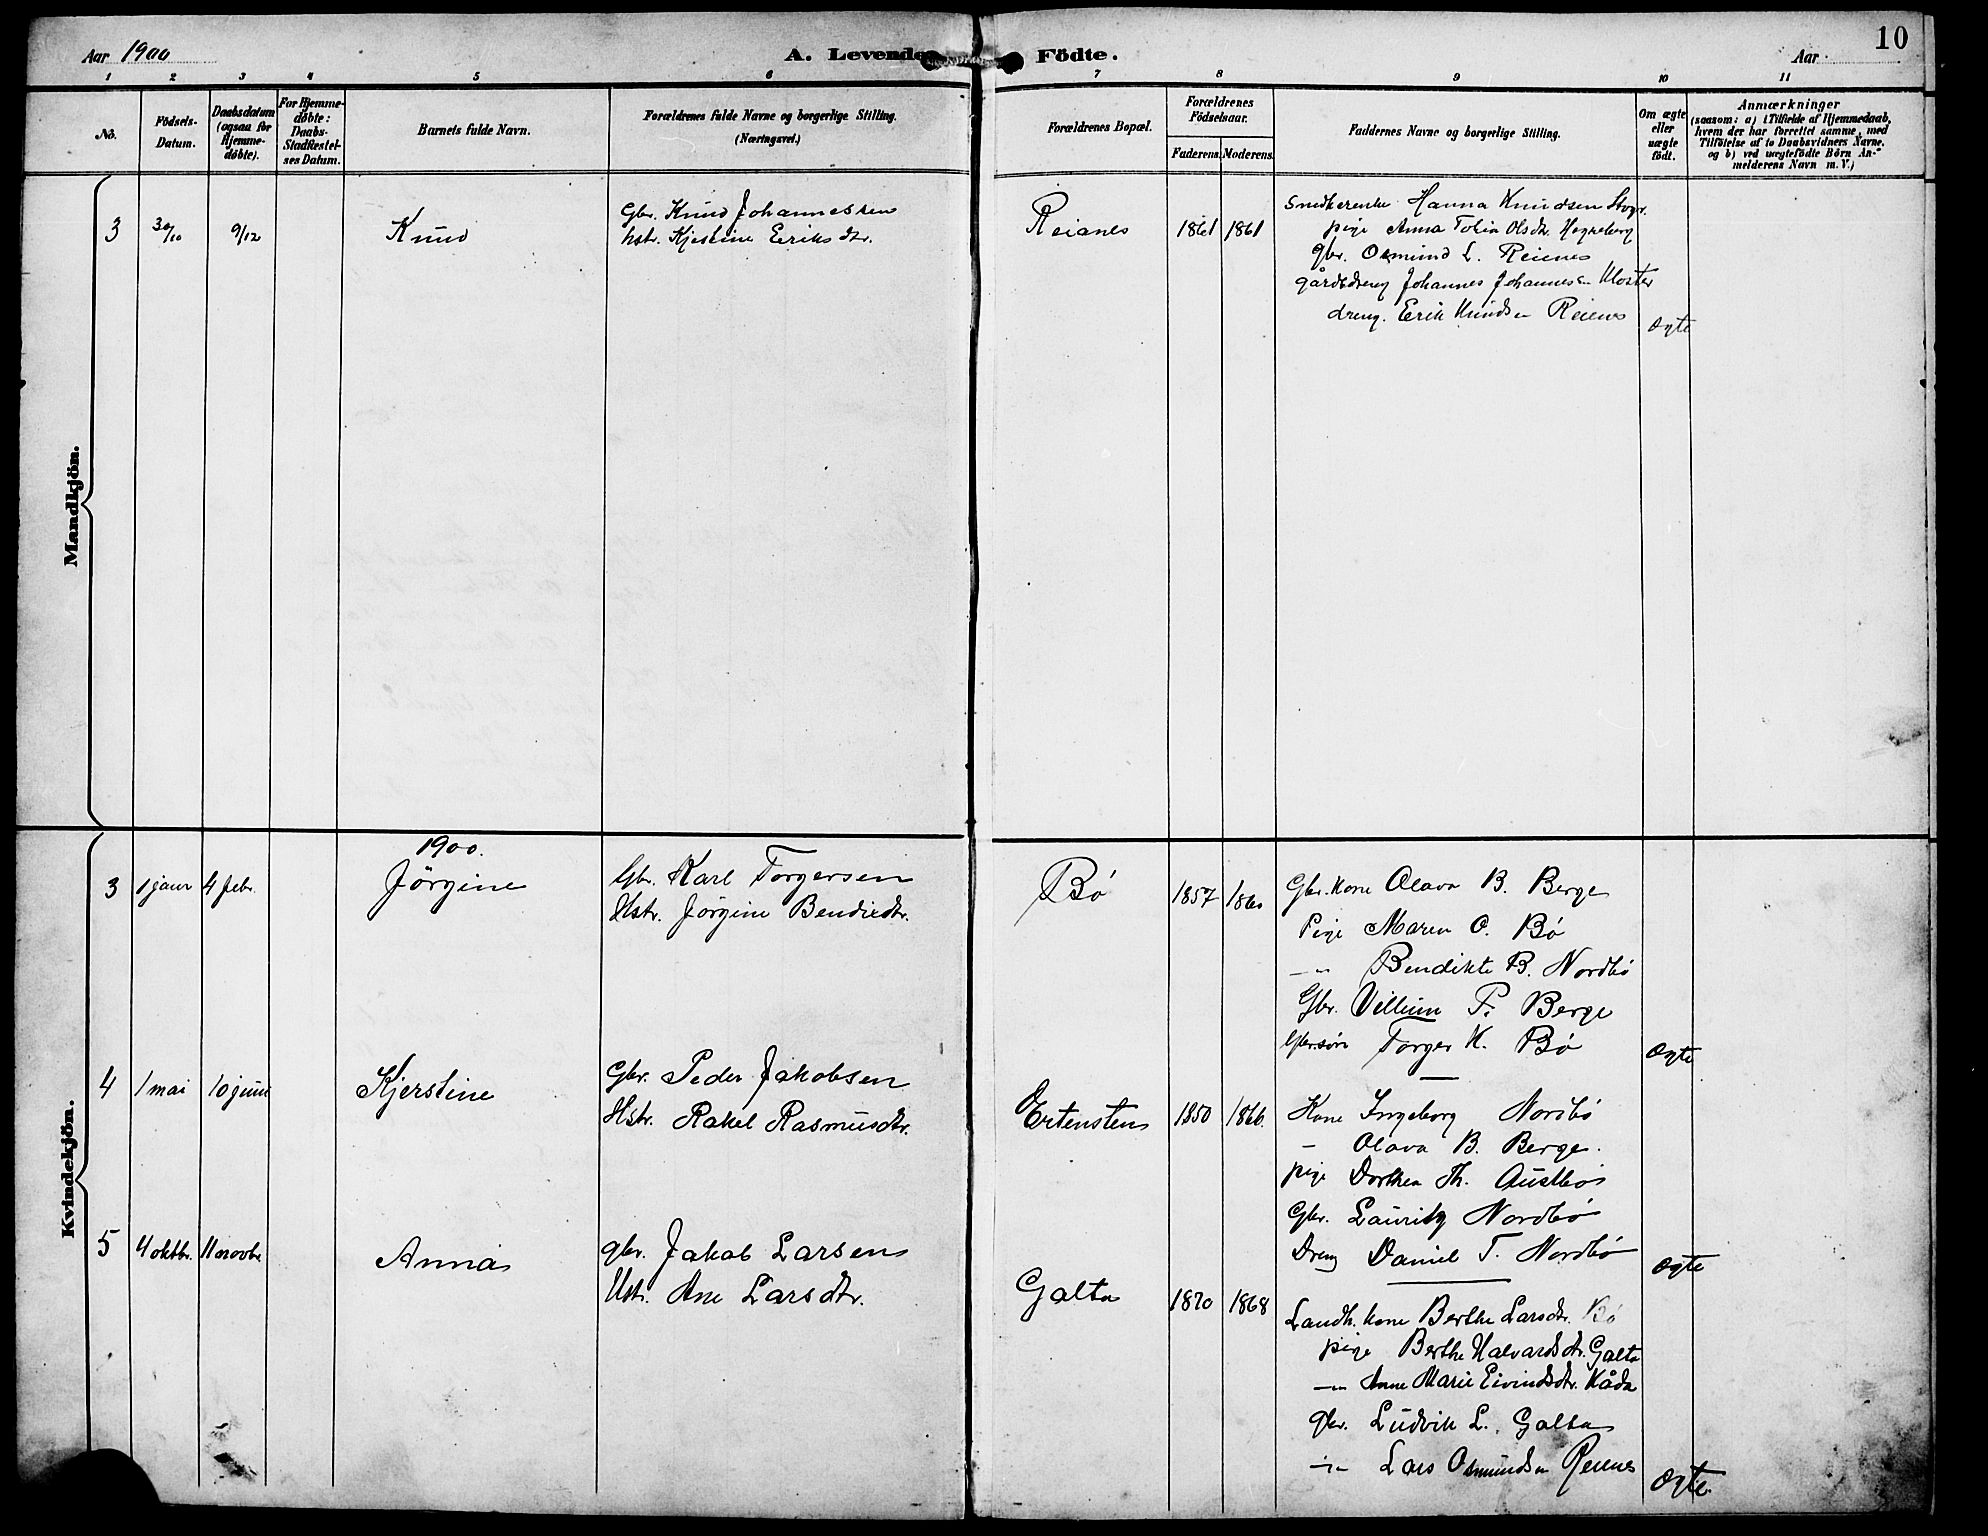 Aar 1900
A. Levende Födte.
Aar
10
1 2 3 4 5 6 7 8 9 10 11
No.
Födsels-
Datum.
Daabsdatum
(ogsaa for
Hjemme-
døbte).
For Hjemme-
døbte:
Daabs-
Stadfæstel-
ses Datum.
Barnets fulde Navn.
Forældrenes fulde Navne og borgerlige Stilling.
(Næringsvei.)
Forældrenes Bopæl.
Forældrenes
Födselsaar.
Faderens. Moderens.
Faddernes Navne og borgerlige Stilling.
Om ægte
eller
uægte
födt.
Anmærkninger
(saasom: a) i Tilfælde af Hjemmedaab,
hvem der har forrettet samme, med
Tilföielse af to Daabsvidners Navne,
og b) ved uægtefödte Börn An-
melderens Navn m. V.)
Mandkjön.
3 30/10 9/12 Knud
Gbr. Knud Johannessen
hstr. Kjestine Eeriksdtr.
Reianes 1861 1861
Snedkerenke Hanna Knudsen
pige Anna Tobia Olsdtr.
gbr. Osmund L. Reienes
gårddreng Johannes Johannesen Kloster
dreng. Erik Knudsen Reienes
ægte
Kvindekjön.
1900.
3 1 janr 4 febr. Jörgine
Gbr. Karl Torgersen
Hstr. Jörgine Bendicdtr.
Bø 1857 1860
Gbr. Kone Olava B. Berge
Pige Maren O. Bø
-"- Bendikte B. Nordbø
Gbr. Villum P. Berge
Gbr.søn Torger K. Bø
Ægte
4 1 mai 10 juni Kjerstine
Gbr. Peder Jakobsen
Hstr. Rakel Rasmusdtr.
Ertensten 1850 1866.
Kone Ingeborg Nordbø
- Olava B. Berge.
pige Dorthea Th. Austbø
Gbr. Lauritz Nordbø
Dreng Daniel T. Nordbø
Ægte
5 4 oktbr. 11 novbr. Anna
gbr. Jakob Larsen
Hstr. Ane Larsdtr.
Galta 1870 1868
Landh. kone Berthe Larsdtr. Bø
pige Berthe Halvardsdtr. Galta
-"- Anne Marie Eivindsdtr. Kåda
gbr. Ludvik L. Galta
-"- Lars Osmundsen Reienes
Ægte.